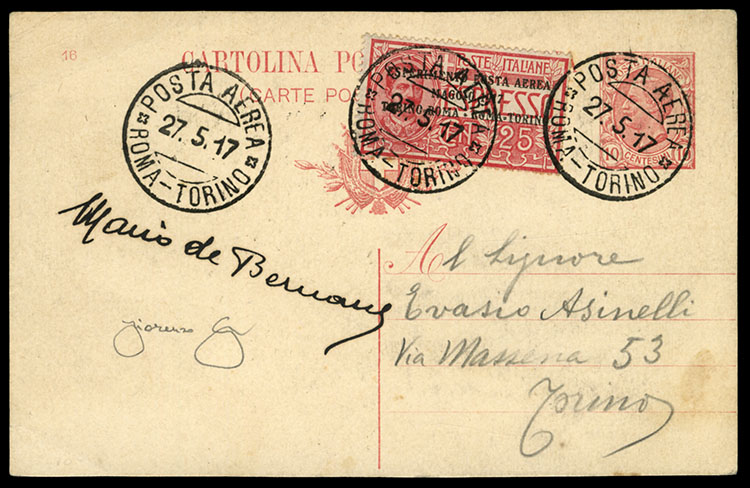 16
CARTOLINA PO
(CARTE PO
POSTE ITALIANE
ESPERIMENTO POSTA AEREA
MAGGIO 1917
TORINO-ROMA · ROMA-TORINO
ESPRESSO
25
10 CENTESIMI
POSTA AEREA
27.5.17
ROMA-TORINO
POSTA AEREA
27.5.17
ROMA-TORINO
POSTA AEREA
27.5.17
ROMA-TORINO
Mario de Bernardi
Al Signore
Evasio Asinelli
Via Massena 53
Torino